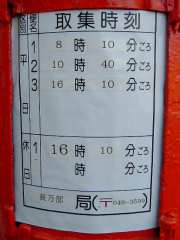 取集時刻
平日
1 8時10分ごろ
2 10時40分ごろ
3 16時10分ごろ
休日
1 16時10分ごろ
時 分ごろ
長万部 局(〒049-3599)